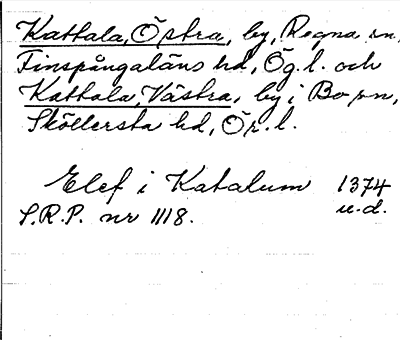 Kattala, Östra, by, Regna sn,
Finspångaläns hd, Ög.l. och
Kattala, Västra, by i Bo sn,
Sköllersta hd, Ör.l.
Elef i Katalum 1374
S.R.P. nr 1118. u.d.